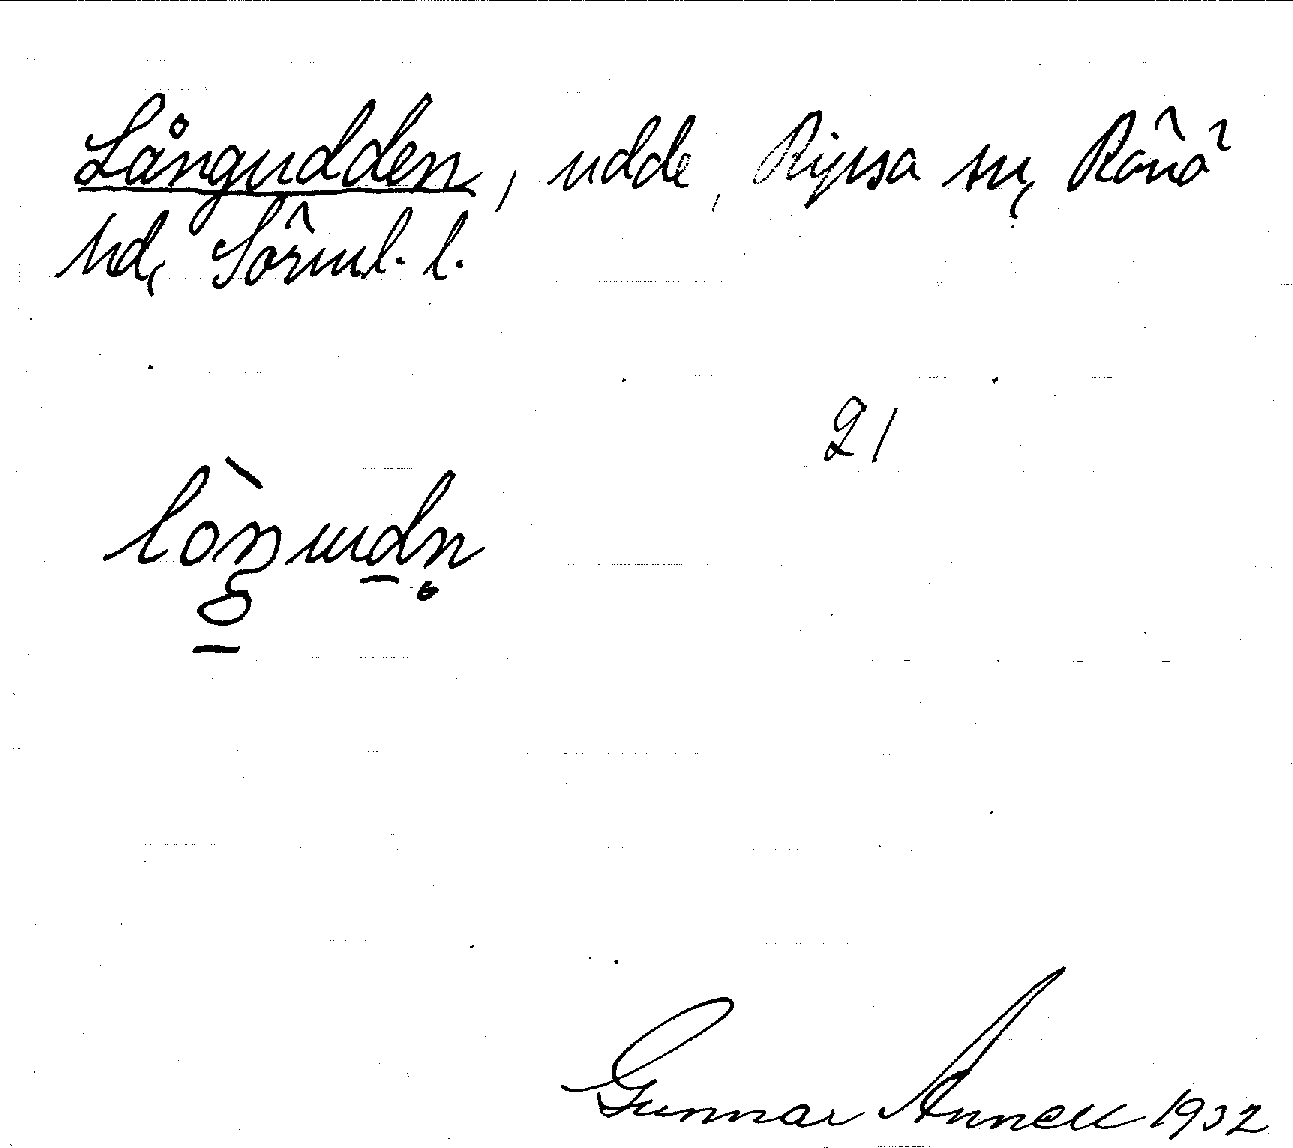 Långudden, udde, Ripsa sn, Rönö
hd, Sörml. l.
21
Gunnar Annell 1932